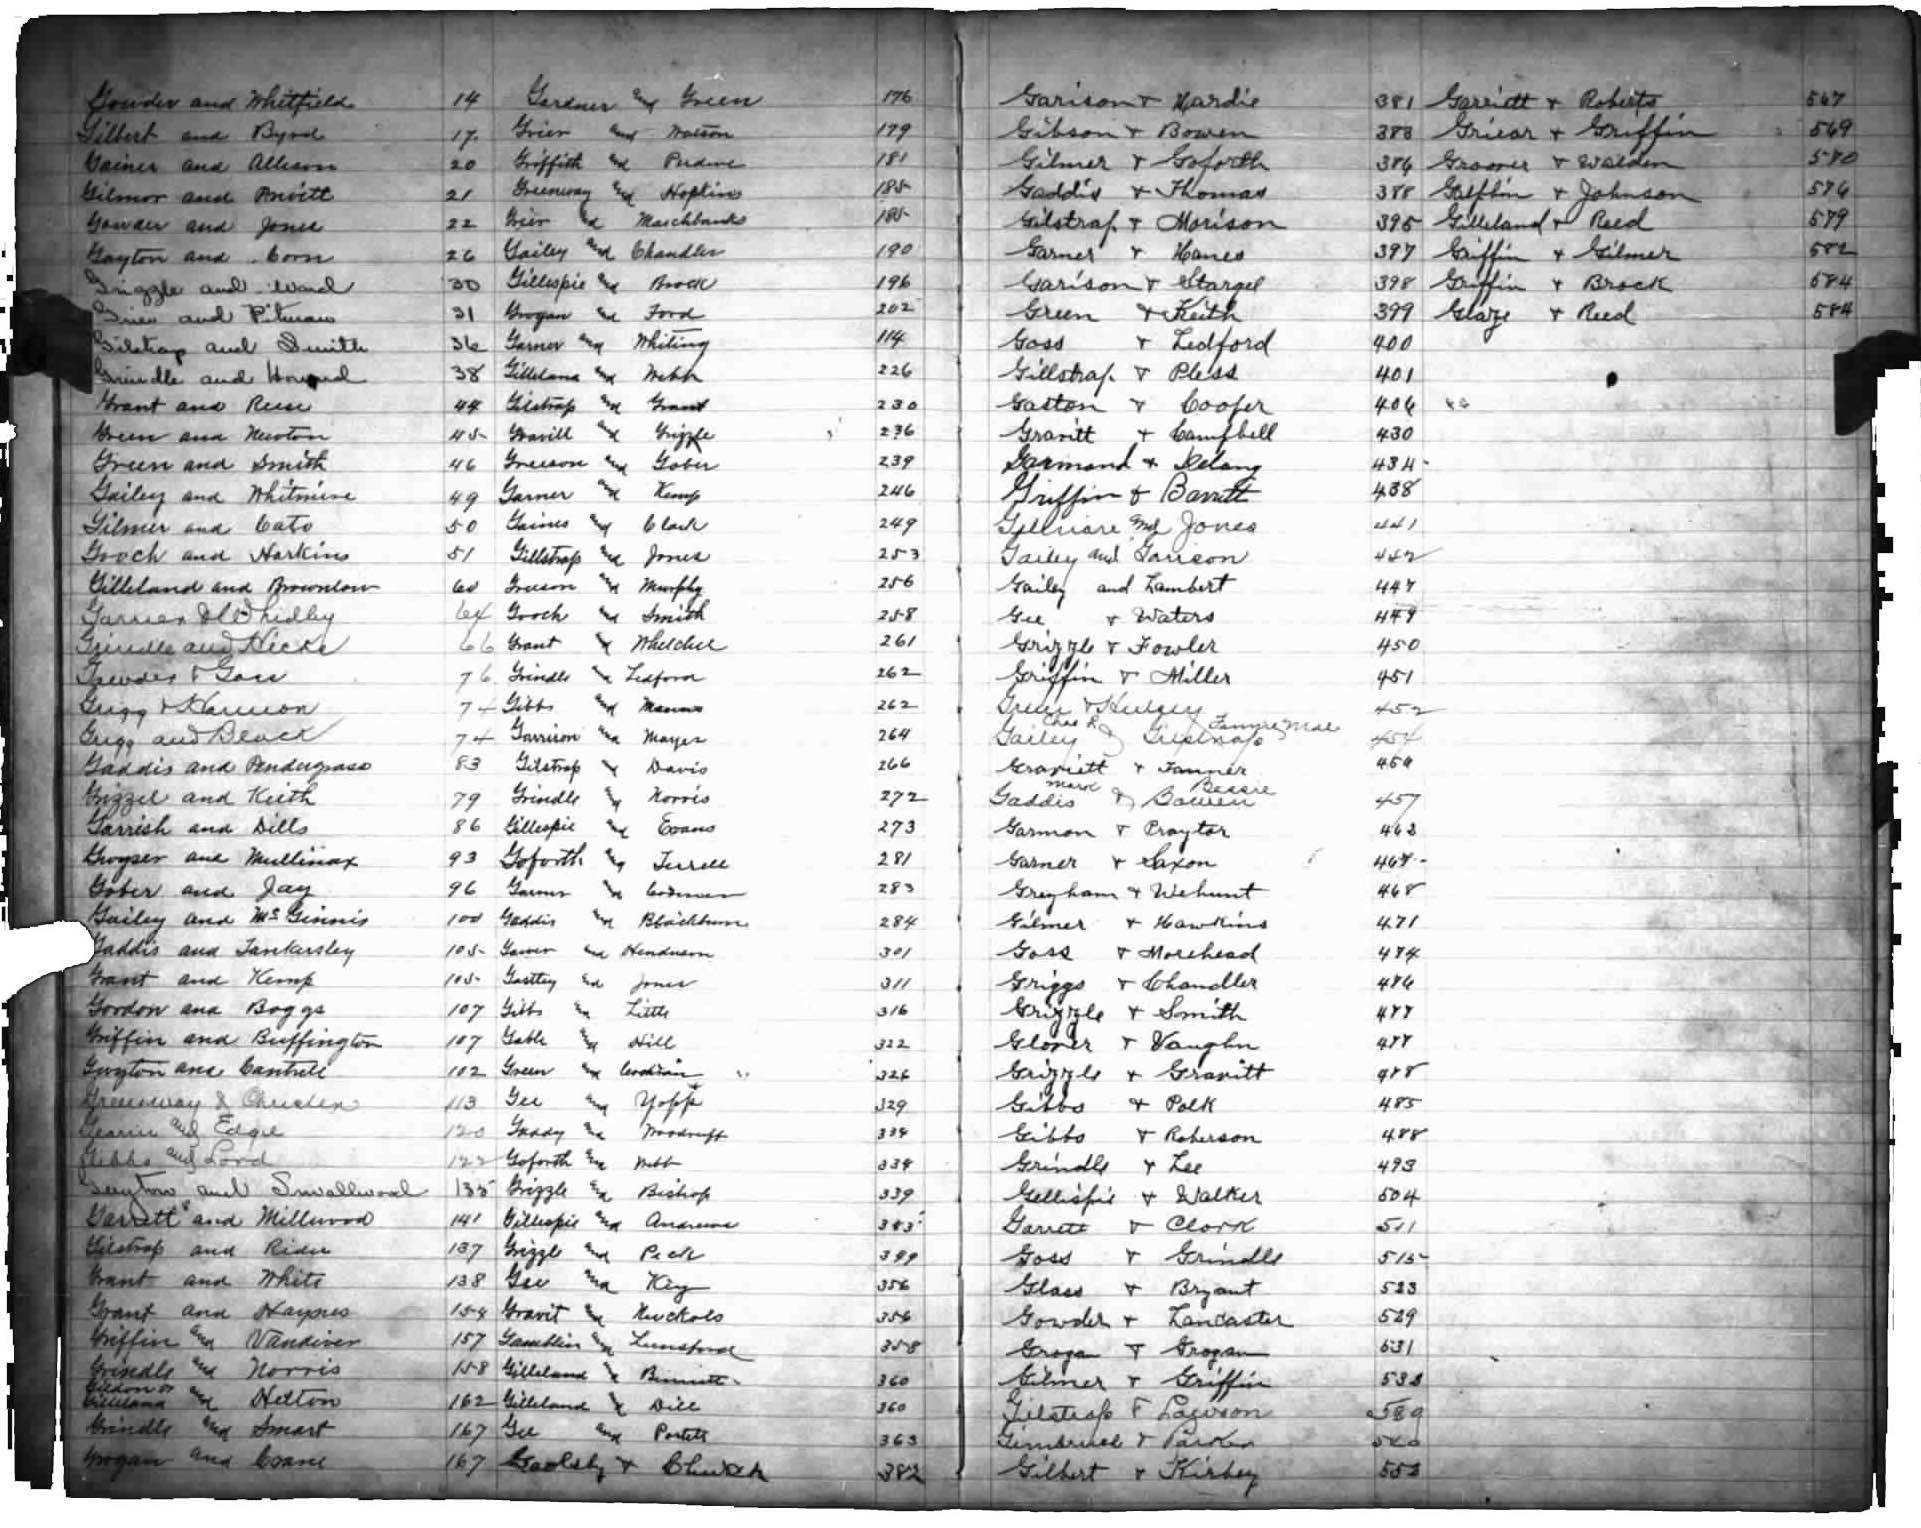 Gowder and Whitfield 14
Gilbert and Byrd 17
Gainer and Allison 20
Gilmor and Privett 21
Gowder and Jones 22
Gayton and Corn 26
Grizzle and Ward 30
Grier and Pitman 31
Gilstrap and Smith 36
Grindle and 38
Grant and Reese 44
Green and Newton 45
Green and Smith 46
Gailey and Whitmire 49
Gilmer and Cato 50
Gooch and Harkins 51
Gilleland and Brownlow 60
Garner & Whidby 64
Grindle and Hicks 66
Gowder & Goss 76
Grigg & Harmon 74
Grigg and Black 74
Gaddis and Pendergrass 83
Grizzel and Keith 79
Garrish and Dills 86
and Mullinax 93
Gober and Jay 96
Gailey and McGinnis 100
Gaddis and Tankersley 105
Grant and Kemp 105
Gordon and Boggs 107
Griffin and Buffington 107
Guyton and Cantrell 102
Greenway & 113
and Edge 120
Gibbs and Lord 122
Guyton and Smallwood 135
Garrett and Millwood 141
Gilstrap and Rider 137
Grant and White 138
Grant and Haynes 154
Griffin and Vandiver 157
Grindle and Norris 158
Gildon or Gilleland and Helton 162
Grindle and Smart 167
Grogan and Crane 167
Gardner and Green 176
Grier and Watson 179
Griffith and Perdue 181
Greenway and Hopkins 185
Grier and Marchbanks 185
Gailey and Chandler 190
Gillespie and Brock 196
Grogan and Ford 202
Garner and Whiting 114
Gilleland and Webb 226
Gilstrap and Grant 230
Gravitt and Grizzle 236
Greeson and Gober 239
Garner and Kemp 246
Gaines and Clark 249
Gillstrap and Jones 253
Greeson and Murphy 256
Gooch and Smith 258
Grant and Whelchel 261
Grindle and Ledford 262
Gibbs and 262
Garrison and Mayes 264
Gilstrap and Davis 266
Grindle and Norris 272
Gillespie and Evans 273
Goforth and Terrell 281
and 283
Gaddis and Blackburn 284
and Henderson 301
and Jones 311
Gibbs and Little 316
Gable and Hill 322
Green and 326
Gee and Yopp 329
Gaddy and Woodruff 334
Goforth and Webb 334
Grizzle and Bishop 339
Gillespie and Andrews 343
Grizzle and Peck 349
Gee and Key 356
Gravit and Nuckols 356
Gamblin and Lunsford 358
Gilleland and Bennett 360
Gilleland and Dill 360
Gee and 363
Goolsby & Church 382
Garison & Hardie 381
Gibson & Bowen 383
Gilmer & Goforth 386
Gaddis & Thomas 388
Gilstrap & Morison 395
Garner & Hanes 397
Garison & Stargel 398
Green & Keith 399
Goss & Ledford 400
Gillstrap & Pless 401
Gaston & Cooper 406
Gravitt & Campbell 430
Garmond & Delong 434
Griffin & Barrett 438
and Jones 441
Gailey and Garrison 442
Gailey and Lambert 447
Gee & Waters 449
Grizzle & Fowler 450
Griffin & Miller 451
Greer & Hulsey 452
Gailey Chas R & Gilstrap Fannie Mae 454
Graviett & Tanner 454
Gaddis & Bowen Bessie 457
Garmon & Praytor 462
Garner & Saxon 467
Greyham & Wehunt 468
Gilmer & Hawkins 471
Goss & Morehead 474
Griggs & Chandler 476
Grizzle & Smith 477
Glover & Vaughn 477
Grizzle & Gravitt 478
Gibbs & Polk 485
Gibbs & Roberson 488
Grindle & Lee 493
Gellispie & Walker 504
Garrett & Clark 511
Goss & Grindle 515
Glass & Bryant 523
Gowder & Lancaster 529
Grogan & Grogan 531
Gilmer & Griffin 533
Gilstrap & Lawson 539
& Parker 540
Gilbert & Kirbey 553
Garriott & Roberts 567
Griear & Griffin 569
Groover & Walden 570
Griffin & Johnson 576
Gilleland & Reed 579
Griffin & Gilmer 582
Griffin & Brock 584
Glaze & Reed 584